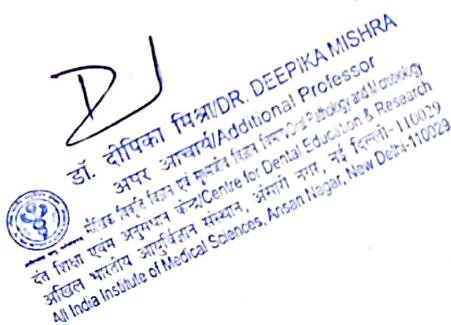 डॉ. दीपिका मिश्रा/DR. DEEPIKA MISHRA
अपर आचार्य/Additional Professor
मौखिक विकृति विज्ञान एवं सूक्ष्मजीव विज्ञान विभाग/Oral Pathology and Microbiology
दंत शिक्षा एवंम अनुसंधान केन्द्र/Centre for Dental Education & Research
अखिल भारतीय आयुर्विज्ञान संस्थान, अंसारी नगर, नई दिल्ली-110029
All India Institute of Medical Sciences, Ansari Nagar, New Delhi-110029